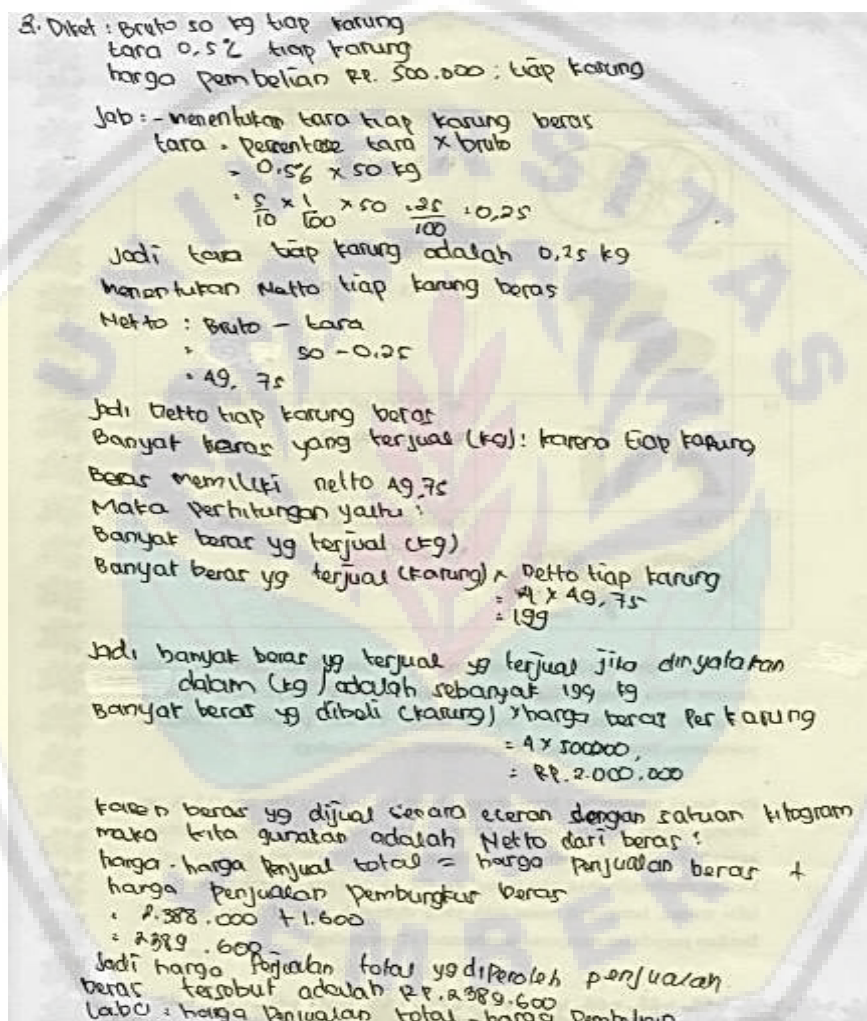 2. Diket : Bruto 50 kg tiap karung
tara 0,5% tiap karung
harga pembelian RP. 500.000 : tiap karung
Jab : - menentukan tara tiap karung beras
tara = Persentase tara x bruto
= 0.5% x 50 kg
= 5/10 x 1/100 x 50 = 25/100 = 0,25
Jadi tara tiap karung adalah 0,25 kg
menentukan Netto tiap karung beras
Netto : Bruto - tara
= 50 - 0.25
= 49, 75
Jadi netto tiap karung beras
Banyak beras yang terjual (kg) : karena tiap karung
Beras memiliki netto 49,75
Maka perhitungan yaitu :
Banyak beras yg terjual (kg)
Banyak beras yg terjual (karung) x netto tiap karung
= 4 x 49,75
= 199
Jadi banyak beras yg terjual yg terjual jika dinyatakan
dalam (kg) adalah sebanyak 199 kg
Banyak beras yg dibeli (karung) x harga beras Per karung
= 4 x 500000,
= RP. 2.000.000
karen beras yg dijual secara eceran dengan satuan kilogram
maka kita gunakan adalah Netto dari beras :
harga - harga Penjual total = harga penjualan beras +
harga penjualan Pembungkus beras
= 2.388.000 + 1.600
= 2389 .600
Jadi harga Penjualan total yg diperoleh penjualan
beras tersebut adalah RP. 2389.600
Laba = harga Penjualan total - harga Pembelian
UNIVERSITAS
JEMBER